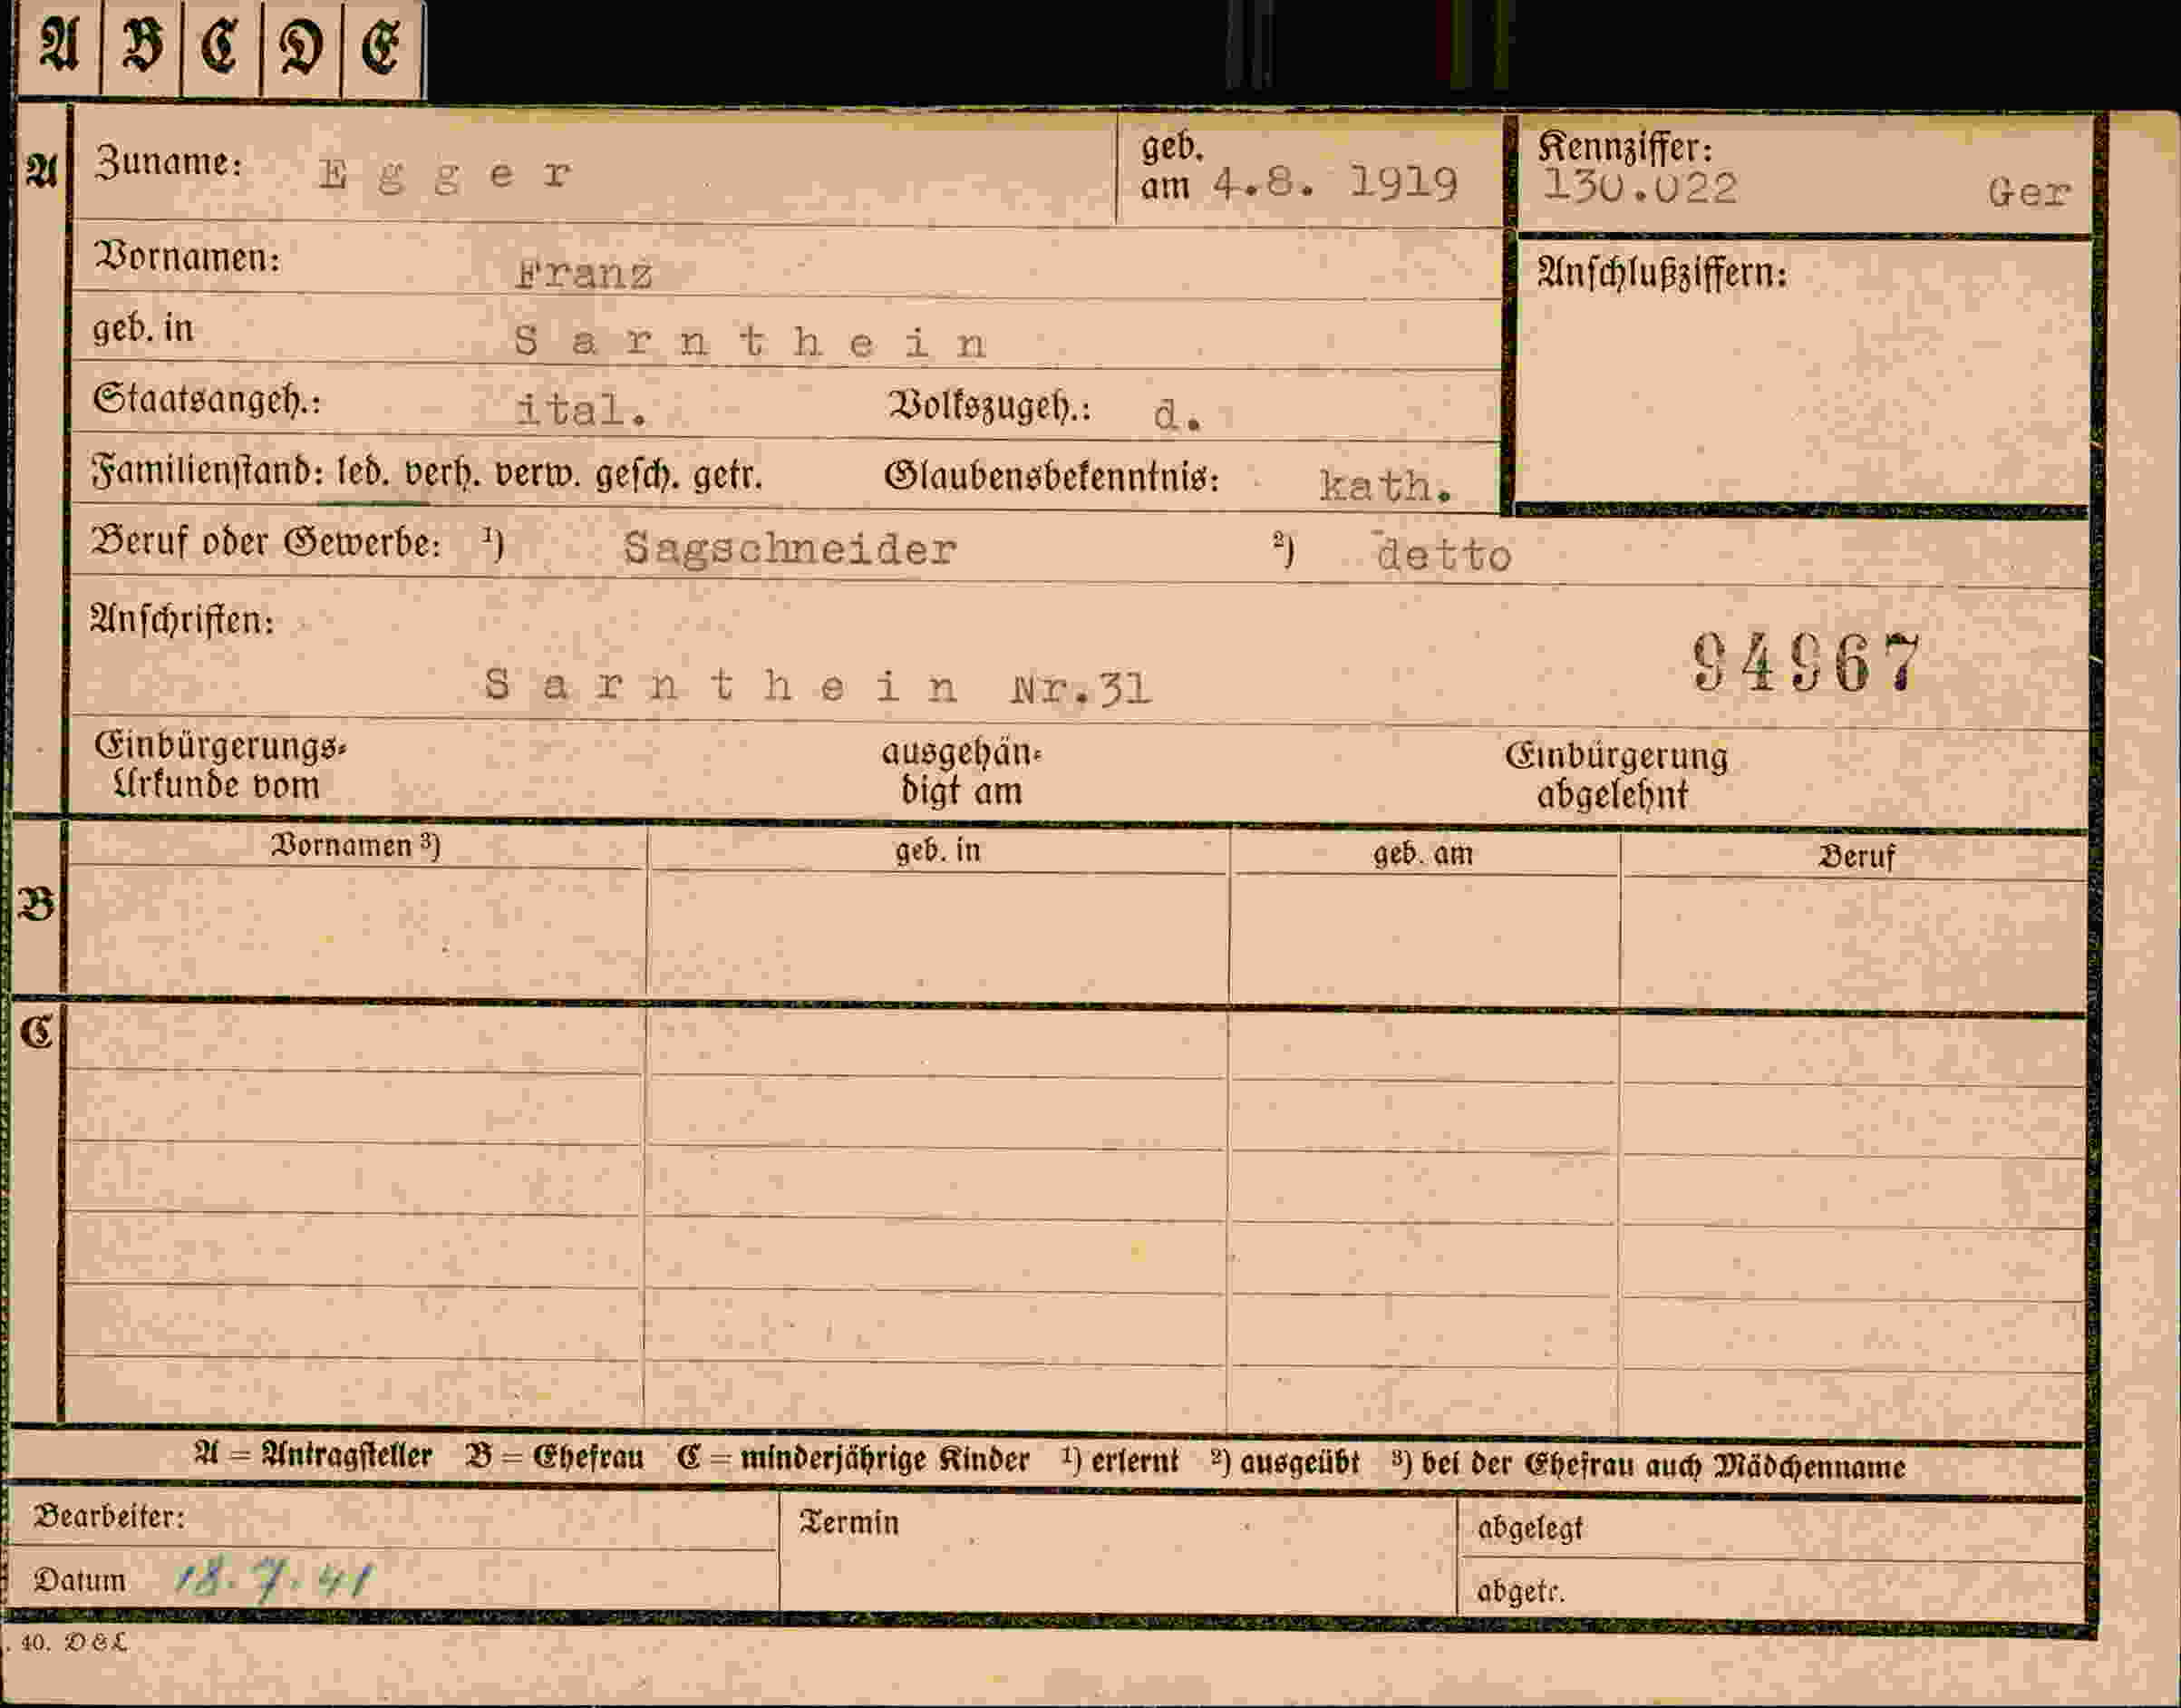 A B C D E
A Zuname: Egger geb. am 4.8. 1919 Kennziffer: 130.022 Ger
Vornamen: Franz Anschlußziffern:
geb. in Sarnthein
Staatsangeh.: ital. Volkszugeh.: d.
Familienstand: led. verh. verw. gesch. getr. Glaubensbekenntnis: kath.
Beruf oder Gewerbe: 1) Sagschneider 2) detto
Anschriften:
94967
Sarnthein Nr.31
Einbürgerungs- ausgehän- Einbürgerung
Urkunde vom digt am abgelehnt
Vornamen 3) geb. in geb. am Beruf
B
C
A = Antragsteller B = Ehefrau C = minderjährige Kinder 1) erlernt 2) ausgeübt 3) bei der Ehefrau auch Mädchenname
Bearbeiter: Termin abgelegt
Datum 18.7.41 abgetr.
. 40. D & L